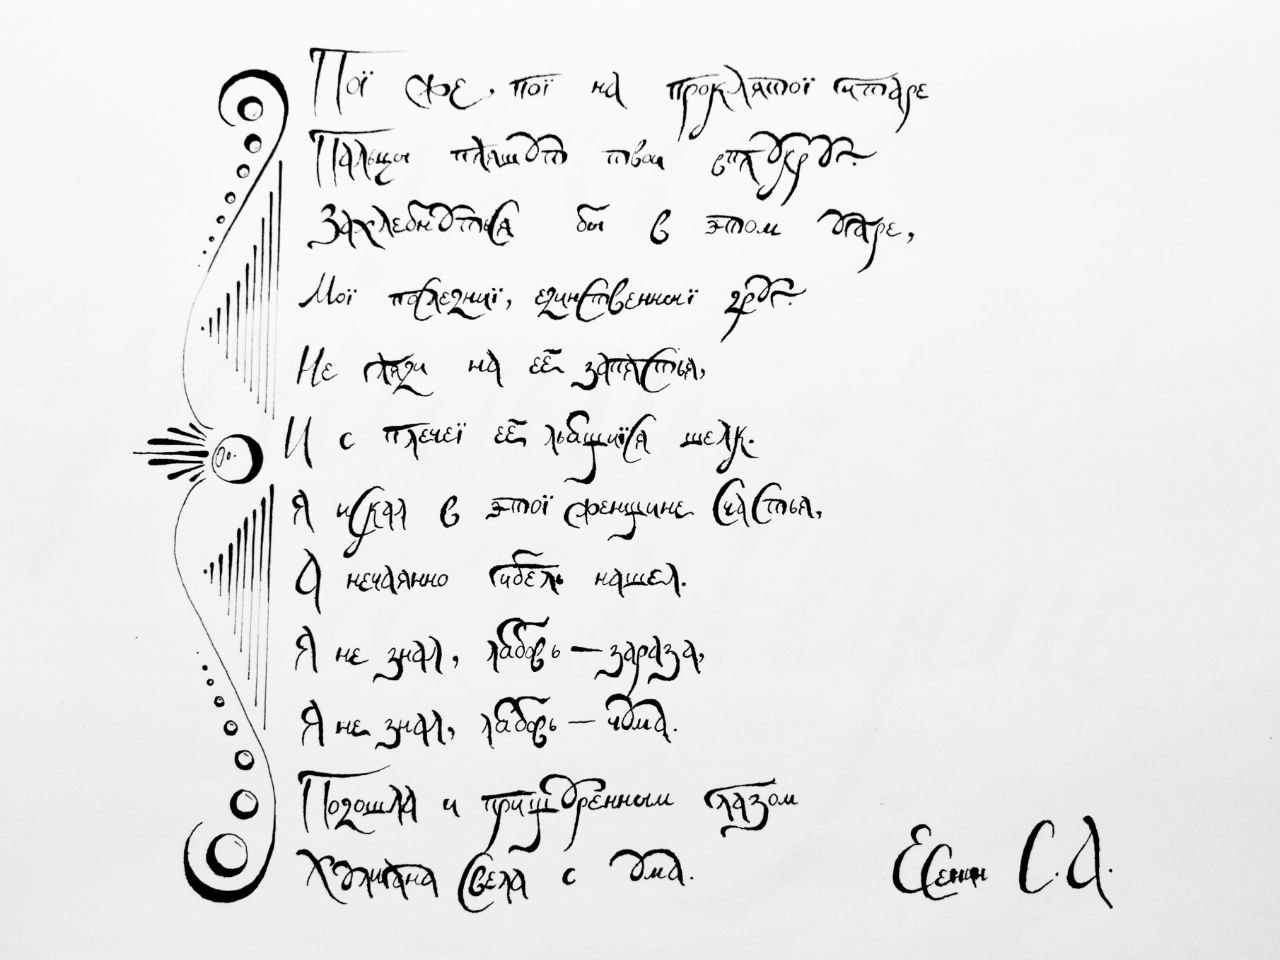 Пой же, пой на проклятой гитаре
Пальцы пляшут твои вполукруг.
Захлебнуться бы в этом угаре,
Мой последний, единственный друг.
Не гляди на её запястья,
И с плечей её льющийся шелк.
Я искал в этой женщине счастья,
А нечаянно гибель нашел.
Я не знал, любовь — зараза,
Я не знал, любовь — чума.
Подошла и прищуренным глазом
Хулигана свела с ума.
Есенин С.А.